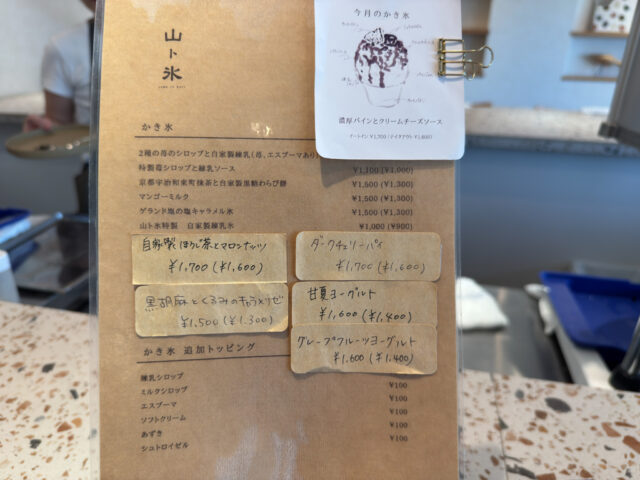 山ト氷
今月のかき氷
濃厚パインとクリームチーズソース
かき氷
2種の苺のシロップと自家製練乳(苺、エスプーマあり)
特製苺シロップと練乳ソース ¥1,100 (¥1,000)
京都宇治和束町抹茶と自家製黒糖わらび餅 ¥1,500 (¥1,300)
マンゴーミルク ¥1,500 (¥1,300)
ゲランド塩の塩キャラメル氷 ¥1,500 (¥1,300)
山ト氷特製 自家製練乳氷 ¥1,000 (¥900)
自家製 ほうじ茶とマロンナッツ
¥1,700 (¥1,600)
ダークチェリーパイ
¥1,700 (¥1,600)
黒胡麻とくるみのキャラメリゼ
¥1,500 (¥1,300)
甘夏ヨーグルト
¥1,600 (¥1,400)
グレープフルーツヨーグルト
¥1,600 (¥1,400)
かき氷 追加トッピング
練乳シロップ ¥100
ミルクシロップ ¥100
エスプーマ ¥100
ソフトクリーム ¥100
あずき ¥100
シュトロイゼル ¥100